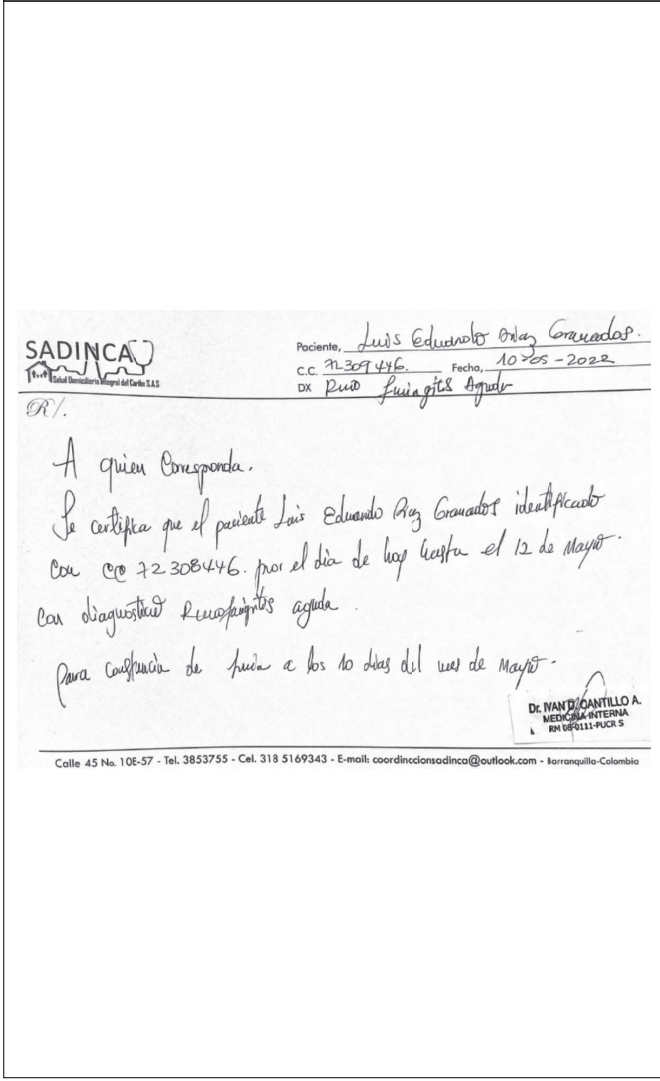 SADINCA
Salud Domiciliaria Integral del Caribe S.A.S
Paciente, Luis Eduardo Diaz Granados.
C.C. 72.309446. Fecha, 10-05-2022
DX Rino faringitis Aguda
R/.
A quien Corresponda.
Se certifica que el paciente Luis Eduardo Diaz Granados identificado
Con CC 72308446. por el dia de hoy hasta el 12 de Mayo.
Con diagnostico Rinofaringitis aguda.
Para constancia de firma a los 10 dias del mes de Mayo.
Dr. IVAN D. CANTILLO A.
MEDICINA INTERNA
RM 08-0111-PUCR S
Calle 45 No. 10E-57 - Tel. 3853755 - Cel. 318 5169343 - E-mail: coordinccionsadinca@outlook.com - Barranquilla-Colombia